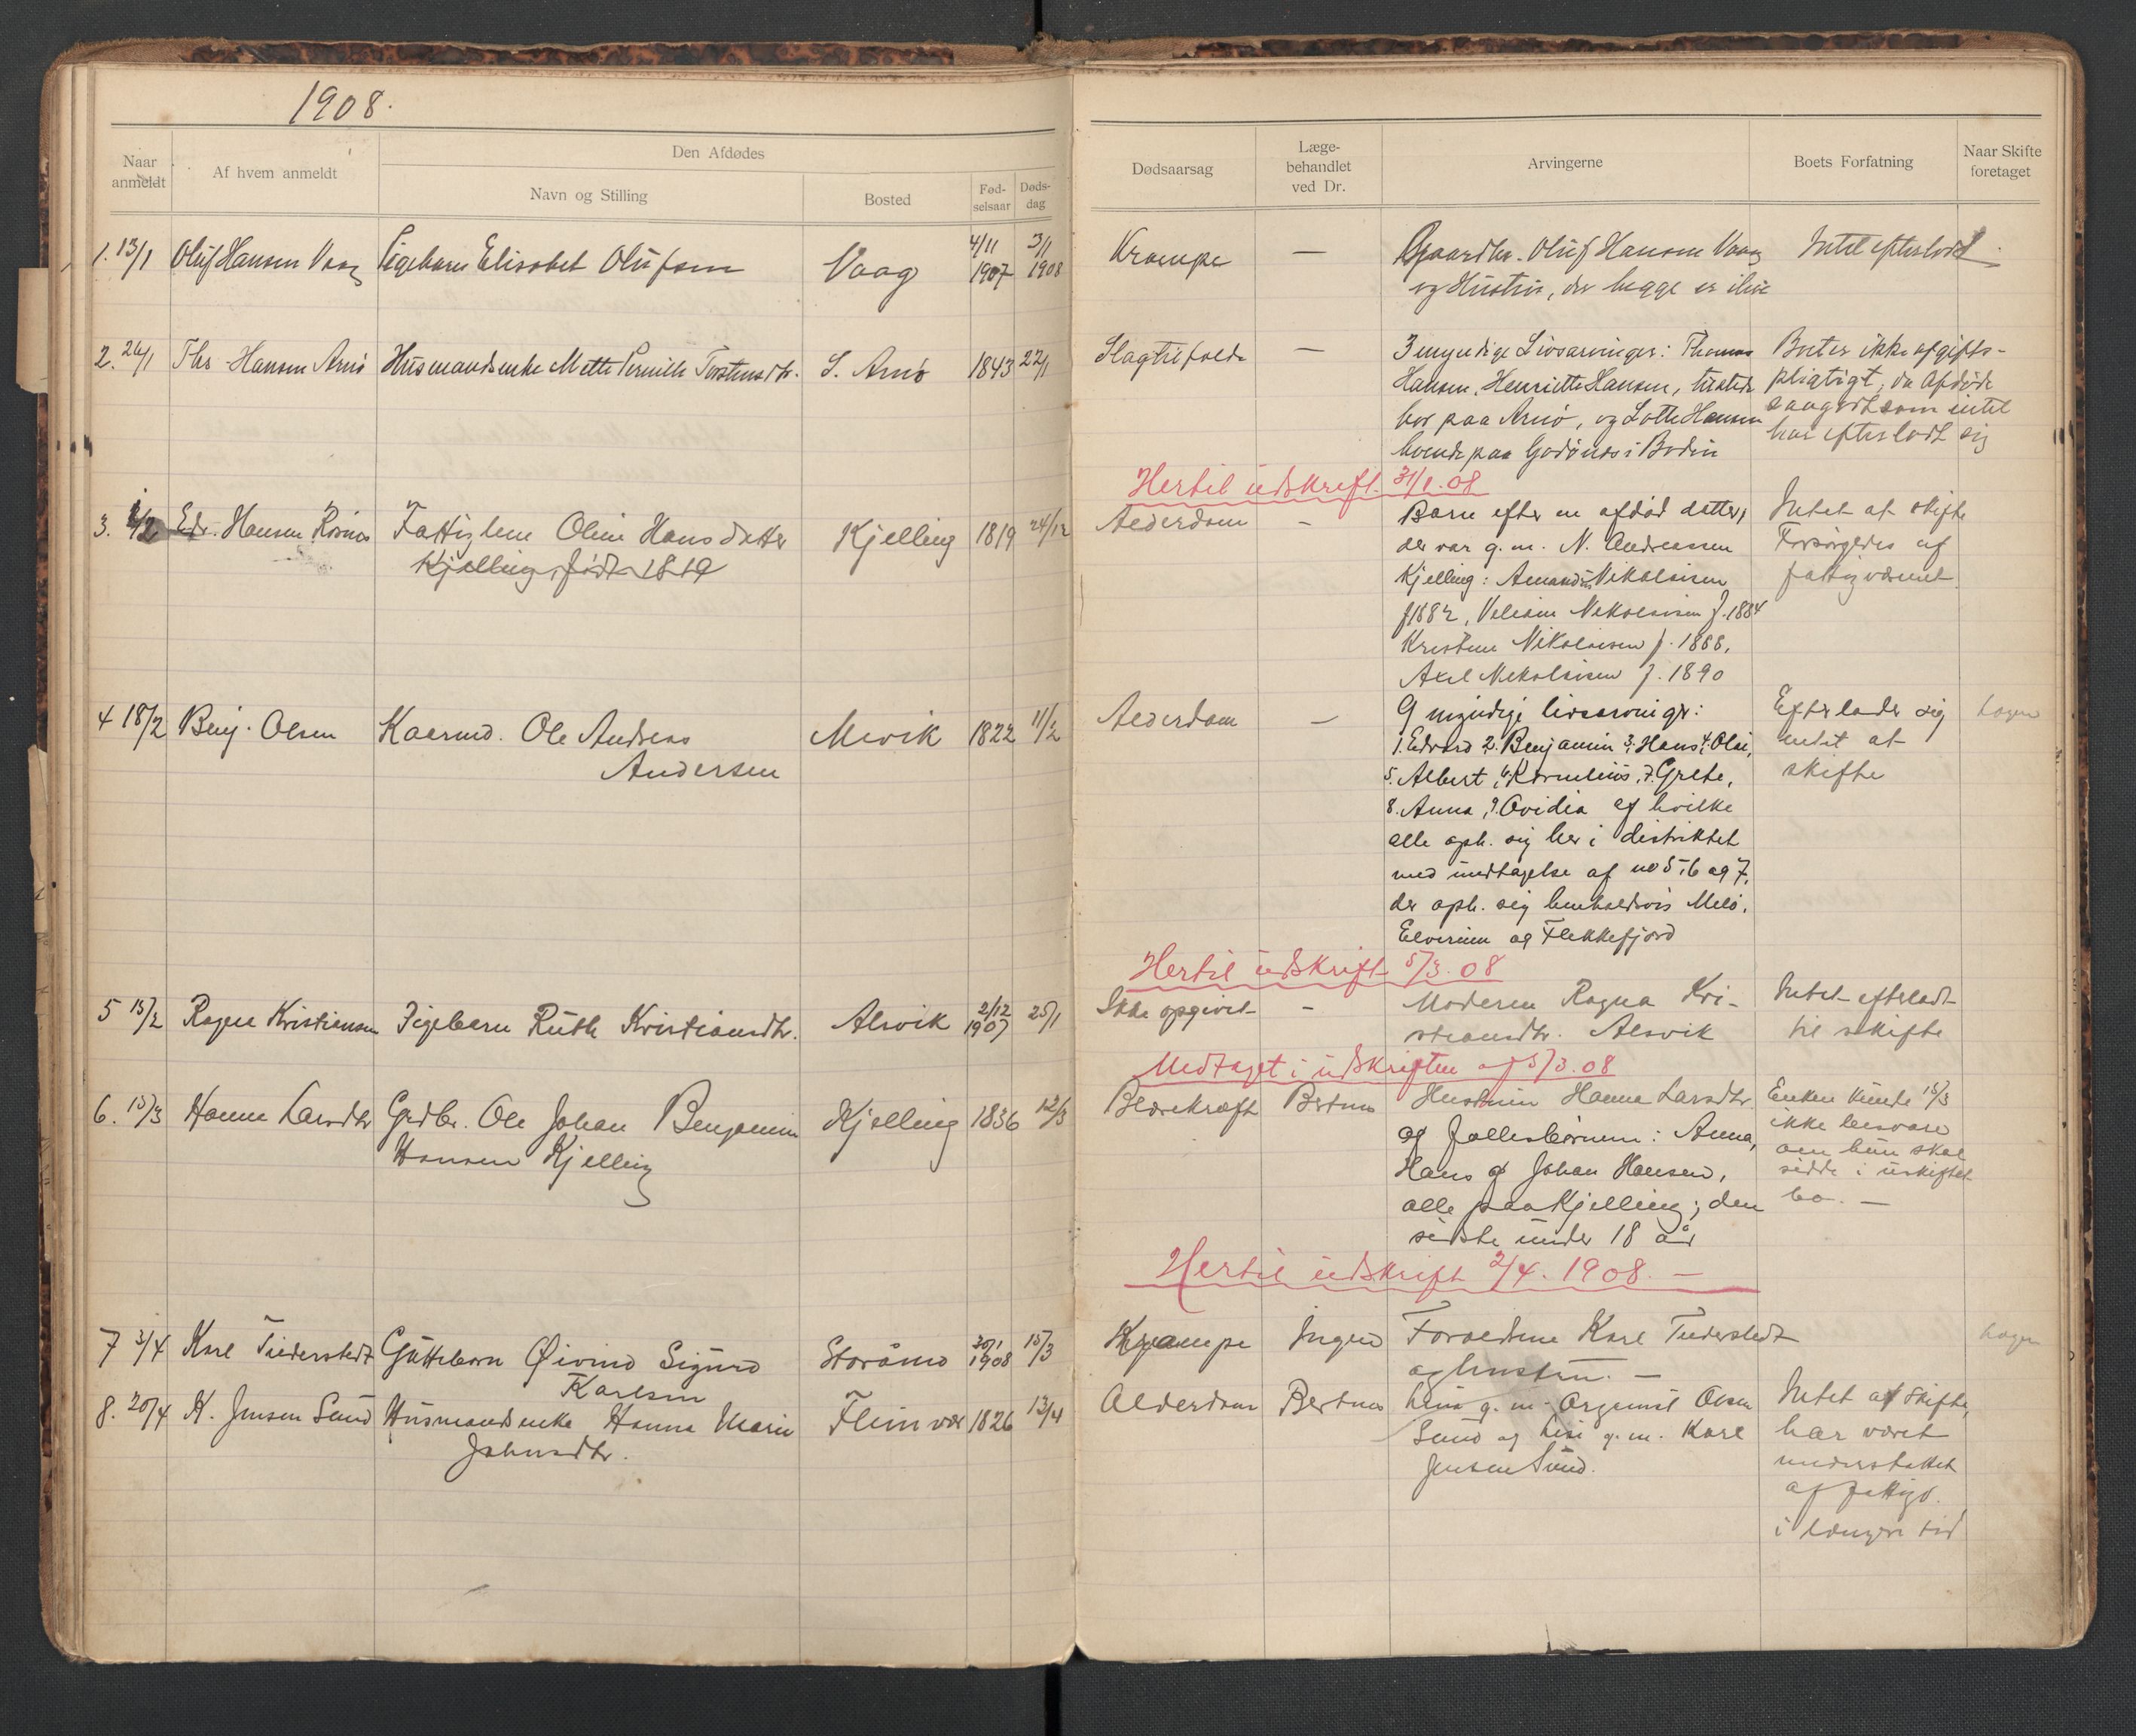 1908.
Naar anmeldt
Af hvem anmeldt
Den Afdødes
Navn og Stilling
Bosted
Fød-selsaar
Døds-dag
Dødsaarsag
Læge-behandlet ved Dr.
Arvingerne
Boets Forfatning
Naar Skifte foretaget
1. 13/1 Oluf Hansen Vaag Pigebarn Elisabet Olufsen Vaag 4/11 1907 3/1 1908 Krampe — Gaardbr. Oluf Hansen Vaag Intet efterladt
og Hustru, der begge er ilive
2. 26/1 Ths Hansen Arnø Husmandsenke Mette Pernille Torstensdtr. S. Arnø 1843 22/1 Slagtilfælde — 3 myndige Livsarvinger: Thomas Boet er ikke afgifts-
Hansen, Henriette Hansen, pligtigt, da Afdøde
bor paa Arnø, og Lotte Hansen saagodtsom intet
boende paa Godønes i Bodin har efterladt sig
Hertil udskrift 31/1.08
3. 1/2 Edv. Hansen Kosmo Fattiglem Oline Hansdatter Kjelling 1819 24/12 Alderdom - Barn efter en afdød datter, Intet at skifte
Kjelling, født 1819 der var g.m. N. Andreassen Forsørgedes af
Kjelling: Nikolaisen fattigvæsenet
f 1882, Nikolaisen f. 1884
Kristine Nikolaisen f. 1888,
Axel Nikolaisen f. 1890
4 18/2 Benj. Olsen Kaarmd. Ole Andreas Mevik 1822 11/2 Alderdom — 9 myndige livsarvinger: Efterlader sig
Andersen 1. Edvard 2. Benjamin 3. Hans, 4. Olai, intet at
5. Albert, 6. Kornelius, 7. Grete, skifte
8. Anna, 9. Ovidia af hvilke
alle oph. sig her i distriktet
med undtagelse af no 5, 6 og 7,
der oph. sig henholdsvis Melø,
Elverum og Flekkefjord
Hertil udskrift 5/3.08
5 15/2 Ragna Kristiansen Pigebarn Ruth Kristiansdtr. Alsvik 2/12 1907 25/1 Ikke opgivet - Moderen Ragna Kri- Intet efterladt
stiansdtr. Alsvik til skifte
Medtaget i udskriften af 5/3.08
6. 15/3 Hanna Larsdtr Grdbr. Ole Johan Benjamin Kjelling 1836 12/3 Blærekræft Hustruen Hanna Larsdtr. Enken kunde 15/3
Hansen Kjelling og fællesbørnene: Anna, ikke besvare
Hans og Johan Hansen, om hun skal
alle paa Kjelling; den sidde i uskiftet
sidste under 18 år bo. —
Hertil udskrift 2/4. 1908. —
7 3/4 Karl Tiederstedt Guttebarn Øivind Sigurd Storåmo 30/1 1908 15/3 Krampe Ingen Forældrene Karl Tiederstedt
Karlsen og hustru. —
8. 20/4 K. Jensen Sund Husmandsenke Hanna Marie Fleinvær 1826 13/4 Alderdom g.m. Olsen Intet at skifte,
Johnsdtr. Sund og g.m. Karl har været
Jensen Sund. understøttet
af fattigv.
i længere tid